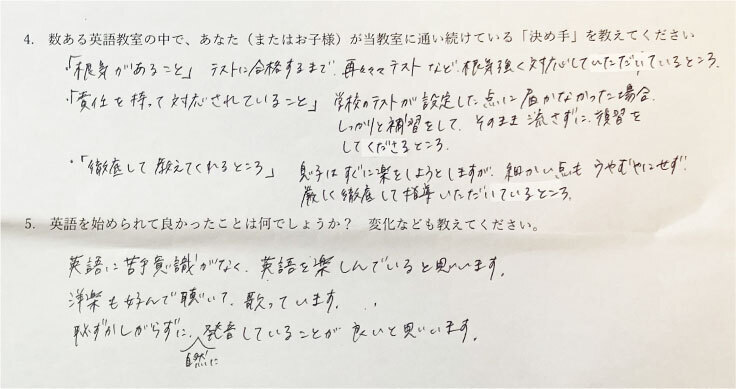 4. 数ある英語教室の中で、あなた（またはお子様）が当教室に通い続けている「決め手」を教えてください
・「根気があること」 テストに合格するまで、再々々々テストなど、根気強く対応していただいているところ。
・「責任を持って対応されていること」 学校のテストが設定した点に届かなかった場合、
しっかりと補習をして、そのまま流さずに、復習を
してくださるところ。
・「徹底して教えてくれるところ」 息子はすぐに楽をしようとしますが、細かい点もうやむやにせず
厳しく徹底して指導いただいているところ。
5. 英語を始められて良かったことは何でしょうか？ 変化なども教えてください。
英語に苦手意識がなく、英語を楽しんでいると思います。
洋楽も好んで聴いて、歌っています。
恥ずかしがらずに、自然に発音していることが良いと思います。